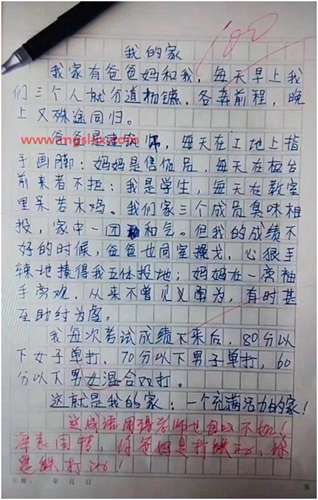 100
我的家
我家有爸爸妈和我，每天早上我
们三个人就分道扬镳，各奔前程，晚
上又殊途同归。
爸爸是建筑师，每天在工地上指
手画脚；妈妈是售货员，每天在柜台
前来者不拒；我是学生，每天在教室
里呆若木鸡。我们家三个成员臭味相
投，家中一团和气。但我的成绩不
好的时候，爸爸也同室操戈，心狠手
辣地揍得我五体投地；妈妈在一旁袖
手旁观，从来不曾见义勇为，有时甚
至助纣为虐。
我每次考试成绩下来后，80分以
下女子单打，70分以下男子单打，60
分以下男女混合双打。
这就是我的家：一个充满活力的家！
这成语用得老师也自以不如！